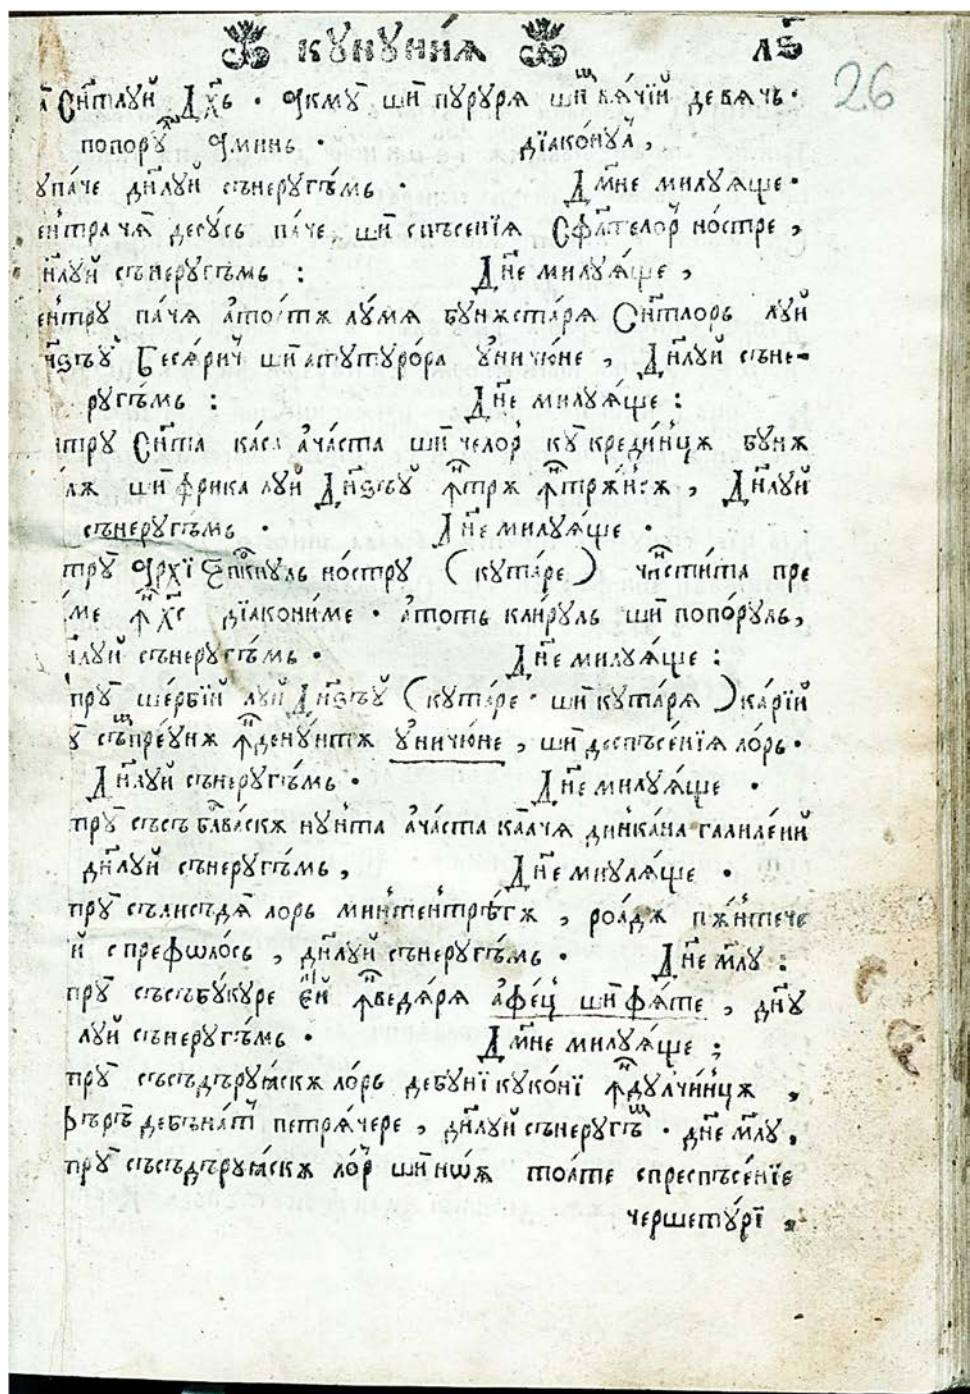 КУНУНЇѦ ЛЅ
26
Сн҃тлуй Дх҃ь · Ꙗкму шѝ пуруря шѝ вячїй девячь ·
попору Ꙗминь · дїаконуⷧ,
упаче дн҃луй сънеругъмь · Дм҃не милуяще ·
ентрачѧ десусь паче, шѝ спъсенїя Сфлⷮелор ностре,
н҃луй сънеругъмь : Дн҃е милуяще,
ентру пачя атоатѫ лумя бунѫстаря Сн҃тлорь луй
Бесяричй шѝ атутурора уничюне, Дн҃луй съне-
ругъмь : Дн҃е милуяще :
нтру Сн҃та каса ачаста шѝ челор ку крединцѫ бунѫ
шѝ фрика луй Дн҃ѕъу ꙟтрѫ ꙟтрѫнсѫ, Дн҃луй
сънеругъмь · Дн҃е милуяще ·
тру Ꙗрхї Епⷭкпуль ностру (кутаре) чинстита пре
ме ꙟ Хс҃ дїакониме · атоть клируль шѝ попоруль,
н҃луй сънеругъмь · Дн҃е милуяще :
пру шербїй луй Дн҃ѕъу (кутаре · шѝ кутаря) карїй
съпреунѫ ꙟденунтѫ уничюне, шѝ деспъсенїя лорь ·
Дн҃луй сънеругъмь · Дн҃е милуяще ·
тру съсъ бл҃васкѫ нунта ачаста ка ачя динкана галилеѝй
дн҃луй сънеругъмь, Дн҃е миуляще ·
пру сълисъдѧ лорь минтентрѣгѫ, роадѫ пѫнтече
й спрефѡлось, дн҃луй сънеругъмь · Дн҃е мл҃у :
пру съсъбукуре ей ꙟведяря афецй шѝ фяте, дн҃у
луй сънеругъмь · Дм҃не милуяще ;
тру съсъдъруяскѫ лорь дебунї куконї ꙟдулчинцѫ,
дебънат петрячере, дн҃луй сънеругъ · дн҃е мл҃у,
тру съсъдъруяскѫ лор шѝ ноѡѧ тоате спреспъсенїе
чершетурї ,